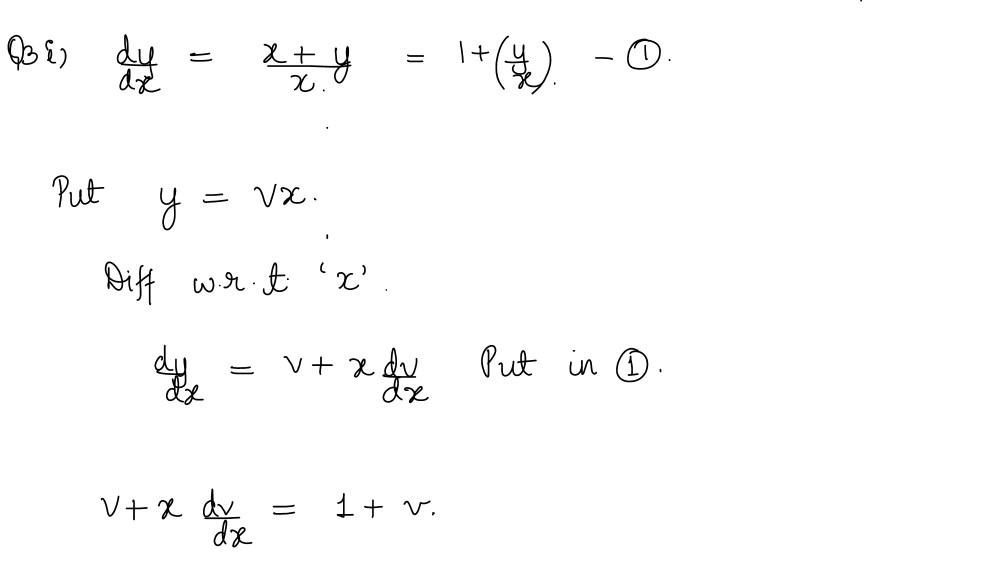 Q3 i) dy/dx = x + y/x. = 1 + (y/x). - ①.
Put y = vx.
Diff w.r.t. 'x'.
dy/dx = v + x dv/dx Put in ①.
v + x dv/dx = 1 + v.